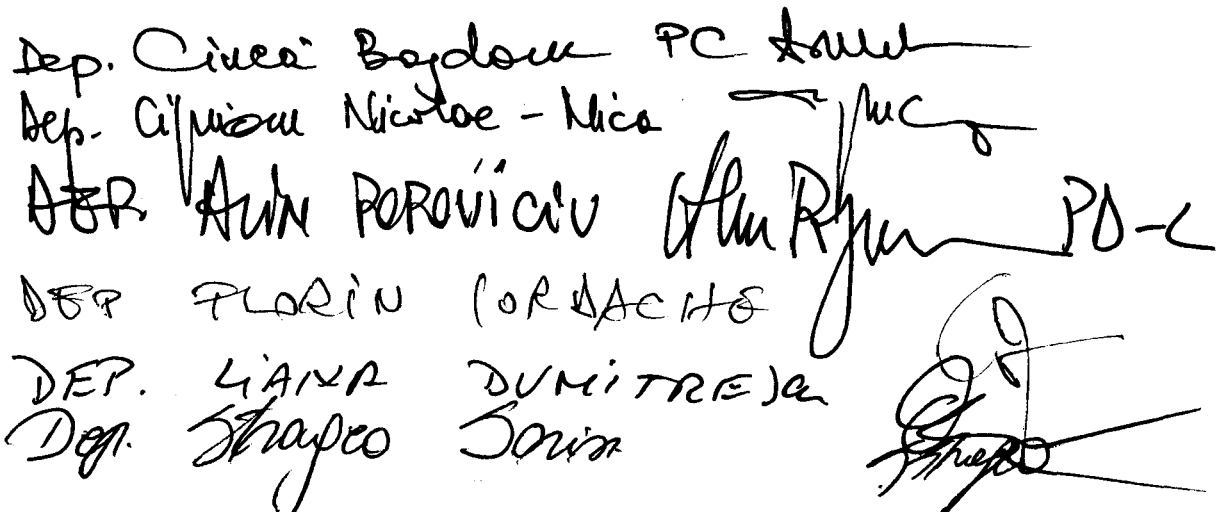 Dep. Ciucă Bogdan PC
Dep. Ciprian Nicolae - Nica
DEP. ALIN POPOVICIU PD-L
DEP FLORIN IORDACHE
DEP. LIANA DUMITRESCU
Dep. Strapco Sorin